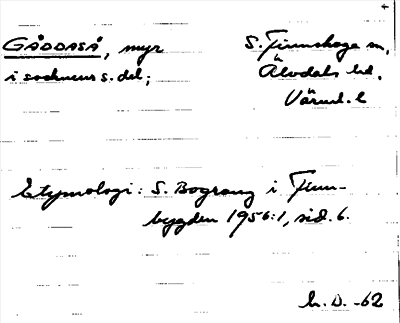 GÅDDASÅ, myr
i socknens s. del;
S. Finnskoga sn,
Älvdals hd.
Värml. l
Etymologi: S. Bograng i Finn-
bygden 1956:1, sid. 6.
h. D. -62